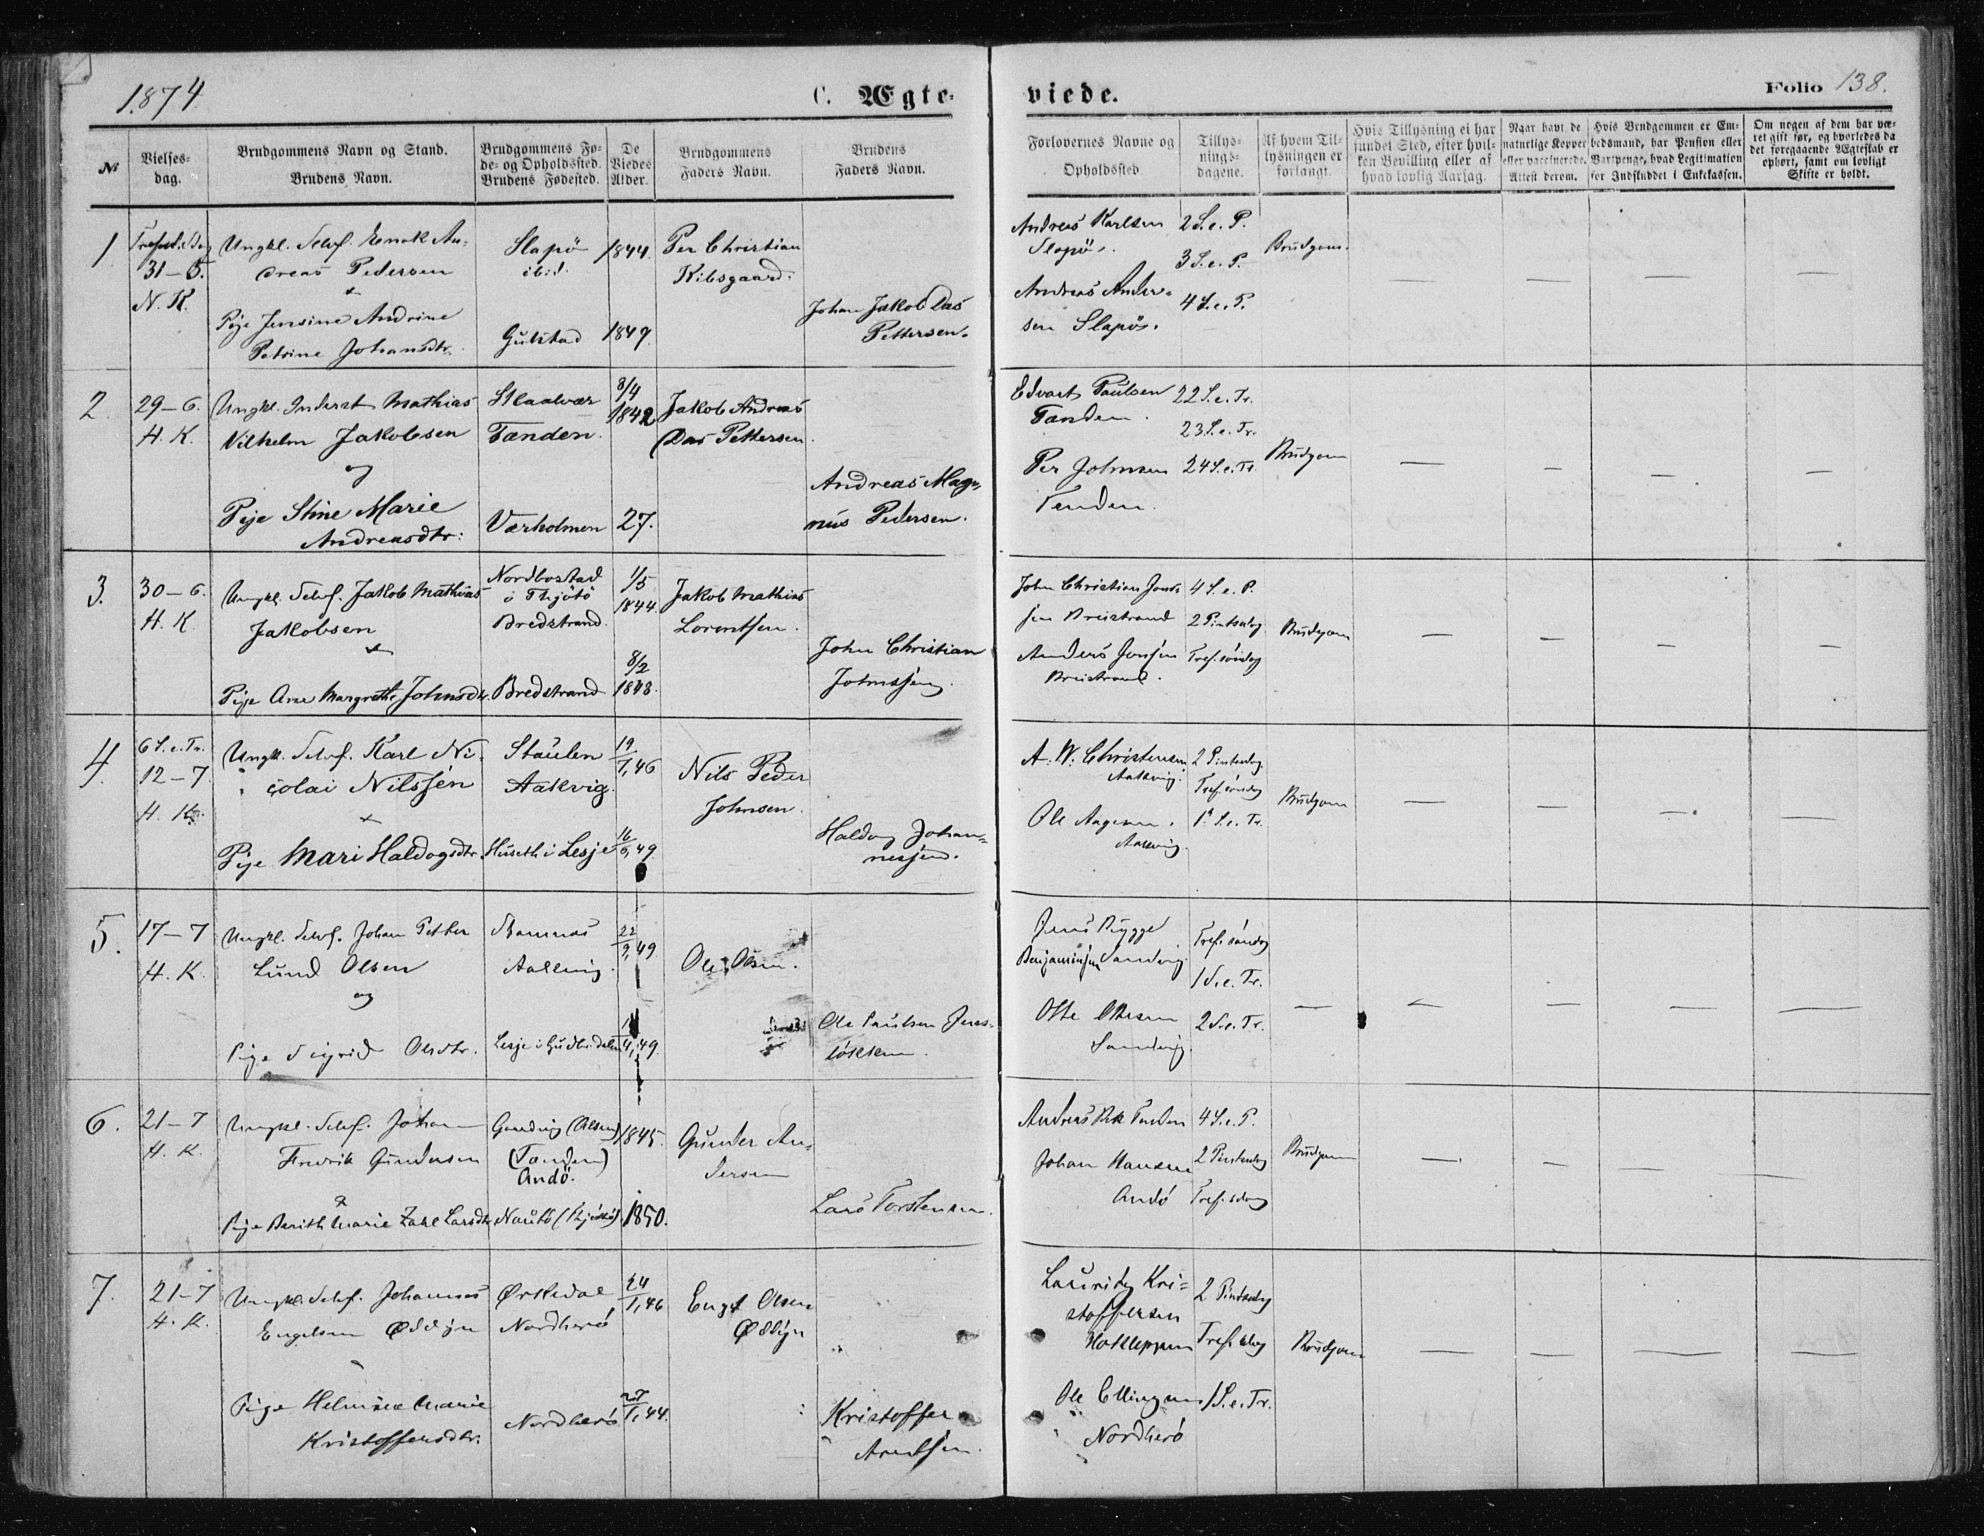 1874.
C. Ægte-
viede.
Folio 138.
№
Vielses-
dag.
Brudgommens Navn og Stand.
Brudens Navn.
Brudgommens Fø-
de- og Opholdssted.
Brudens Fødested.
De
Viedes
Alder.
Brudgommens
Faders Navn.
Brudens
Faders Navn.
Forlovernes Navne og
Opholdssted
Tillys-
nings-
dagene.
Af hvem Til-
lysningen er
forlangt.
Hvis Tillysning ei har
fundet Sted, efter hvil-
ken Bevilling eller af
hvad lovlig Aarsag.
Naar havt de
naturlige Kopper
eller vaccinerede.
Attest derom.
Hvis Brudgommen er Em-
bedsmand, har Pension eller
Vartpenge, hvad Legitimation
for Indskuddet i Enkekassen.
Om nogen af dem har væ-
ret gift før, og hvorledes da
det foregaaende Ægteskab er
ophørt, samt om lovligt
Skifte er holdt.
1
31-5.
N. K.
Ungkl. Selvf. Enok An-
dreas Pedersen
+
Pige Jensine Andrine
Petrine Johansdtr.
Slapø
ibid.
Gulstad
1844.
1849.
Per Christian
Kibsgaard.
Johan Jakob Das
Pettersen.
Andreas Karlsen
Slapø.
Andreas Ander-
sen Slapø.
2 S. e. P.
3 S. e. P.
4 S. e. P.
Brudgom.
2.
29-6.
H. K.
Ungkl. Inderst Mathias
Vilhelm Jakobsen
og
Pige Stine Marie
Andreasdtr.
Slaalvær
Tenden.
Værholmen
8/4
1842
27.
Jakob Andreas
Das Pettersen.
Andreas Mag-
nus Pedersen.
Edvart Paulsen
Tenden.
Per Johnsen
Tenden.
22 S. e. Tr.
23 S. e. Tr.
24 S. e. Tr.
Brudgom
3.
30-6.
H. K.
Ungkl. Selvf. Jakob Mathias
Jakobsen
+
Pige Ane Margrethe Johnsdtr.
Nordbostad
i Thjøtø
Bredstrand.
Bredstrand
1/5
1844.
8/2
1848.
Jakob Mathias
Lorentsen.
John Christian
Johnssen.
John Christian Johns-
sen Breistrand
Anders Jensen
Breistrand.
4 S. e. P.
2 Pintsedg
Tref. søndag
Brudgom
4.
6 S. e. Tr.
12-7
H. K.
Ungkl. Selvf. Karl Ni-
colai Nilssen
+
Pige Mari Haldogsdtr.
Staulen
Aakvig.
Huseth i Lesje
19/1,46
16/6,49.
Nils Peder
Johnsen.
Haldog Johan-
nessen.
A. W. Christensen
Aakvig.
Ole Aagesen.
Aakvig.
2 Pintsedg.
Tref. søndag
1. S. e. Tr.
Brudgom
5.
17-7
H. K.
Ungkl. Selvf. Johan Petter
Lund Olsen
og
Pige Sigrid Olsdtr.
Lesje i Gudbr.dalen
22/9,49
Ole Olsen.
Ole Paulsen Jens-
løkken.
Jens Rygge
Benjaminsen Sandvig.
Otte Ottesen
Sandvig.
Tref. søndag
1 S. e. Tr.
2 S. e. Tr.
6.
21-7
H. K.
Ungkl. Selvf. Johan
Fredrik Gundersen
&
Pige Berith Marie Zahl Larsdtr.
(Tenden)
Andø.
Nautø (Thjøtø).
1845.
1850.
Gunder An-
dersen
Lars Torstensen.
Johan Hansen
Andø
4 S. e. P.
2 Pintsedg
Tref. sdag
Brudgom
7.
21-7
H. K.
Ungkl. Selvf. Johannes
Engelsen Øddyn
Pige Helmine Marie
Kristoffersdtr.
Ørkedal
Nordherø
Nordherø
24/1,46
27/1,44.
Engel Olsen
Øddyn
Kristoffer
Arntsen.
Lauridg Kri-
stoffersen
Hatleppen
Ole Ellingsen
Nordherø
2 Pintsedg
Tref. sdag
1 S. e. Tr.
Brudgom